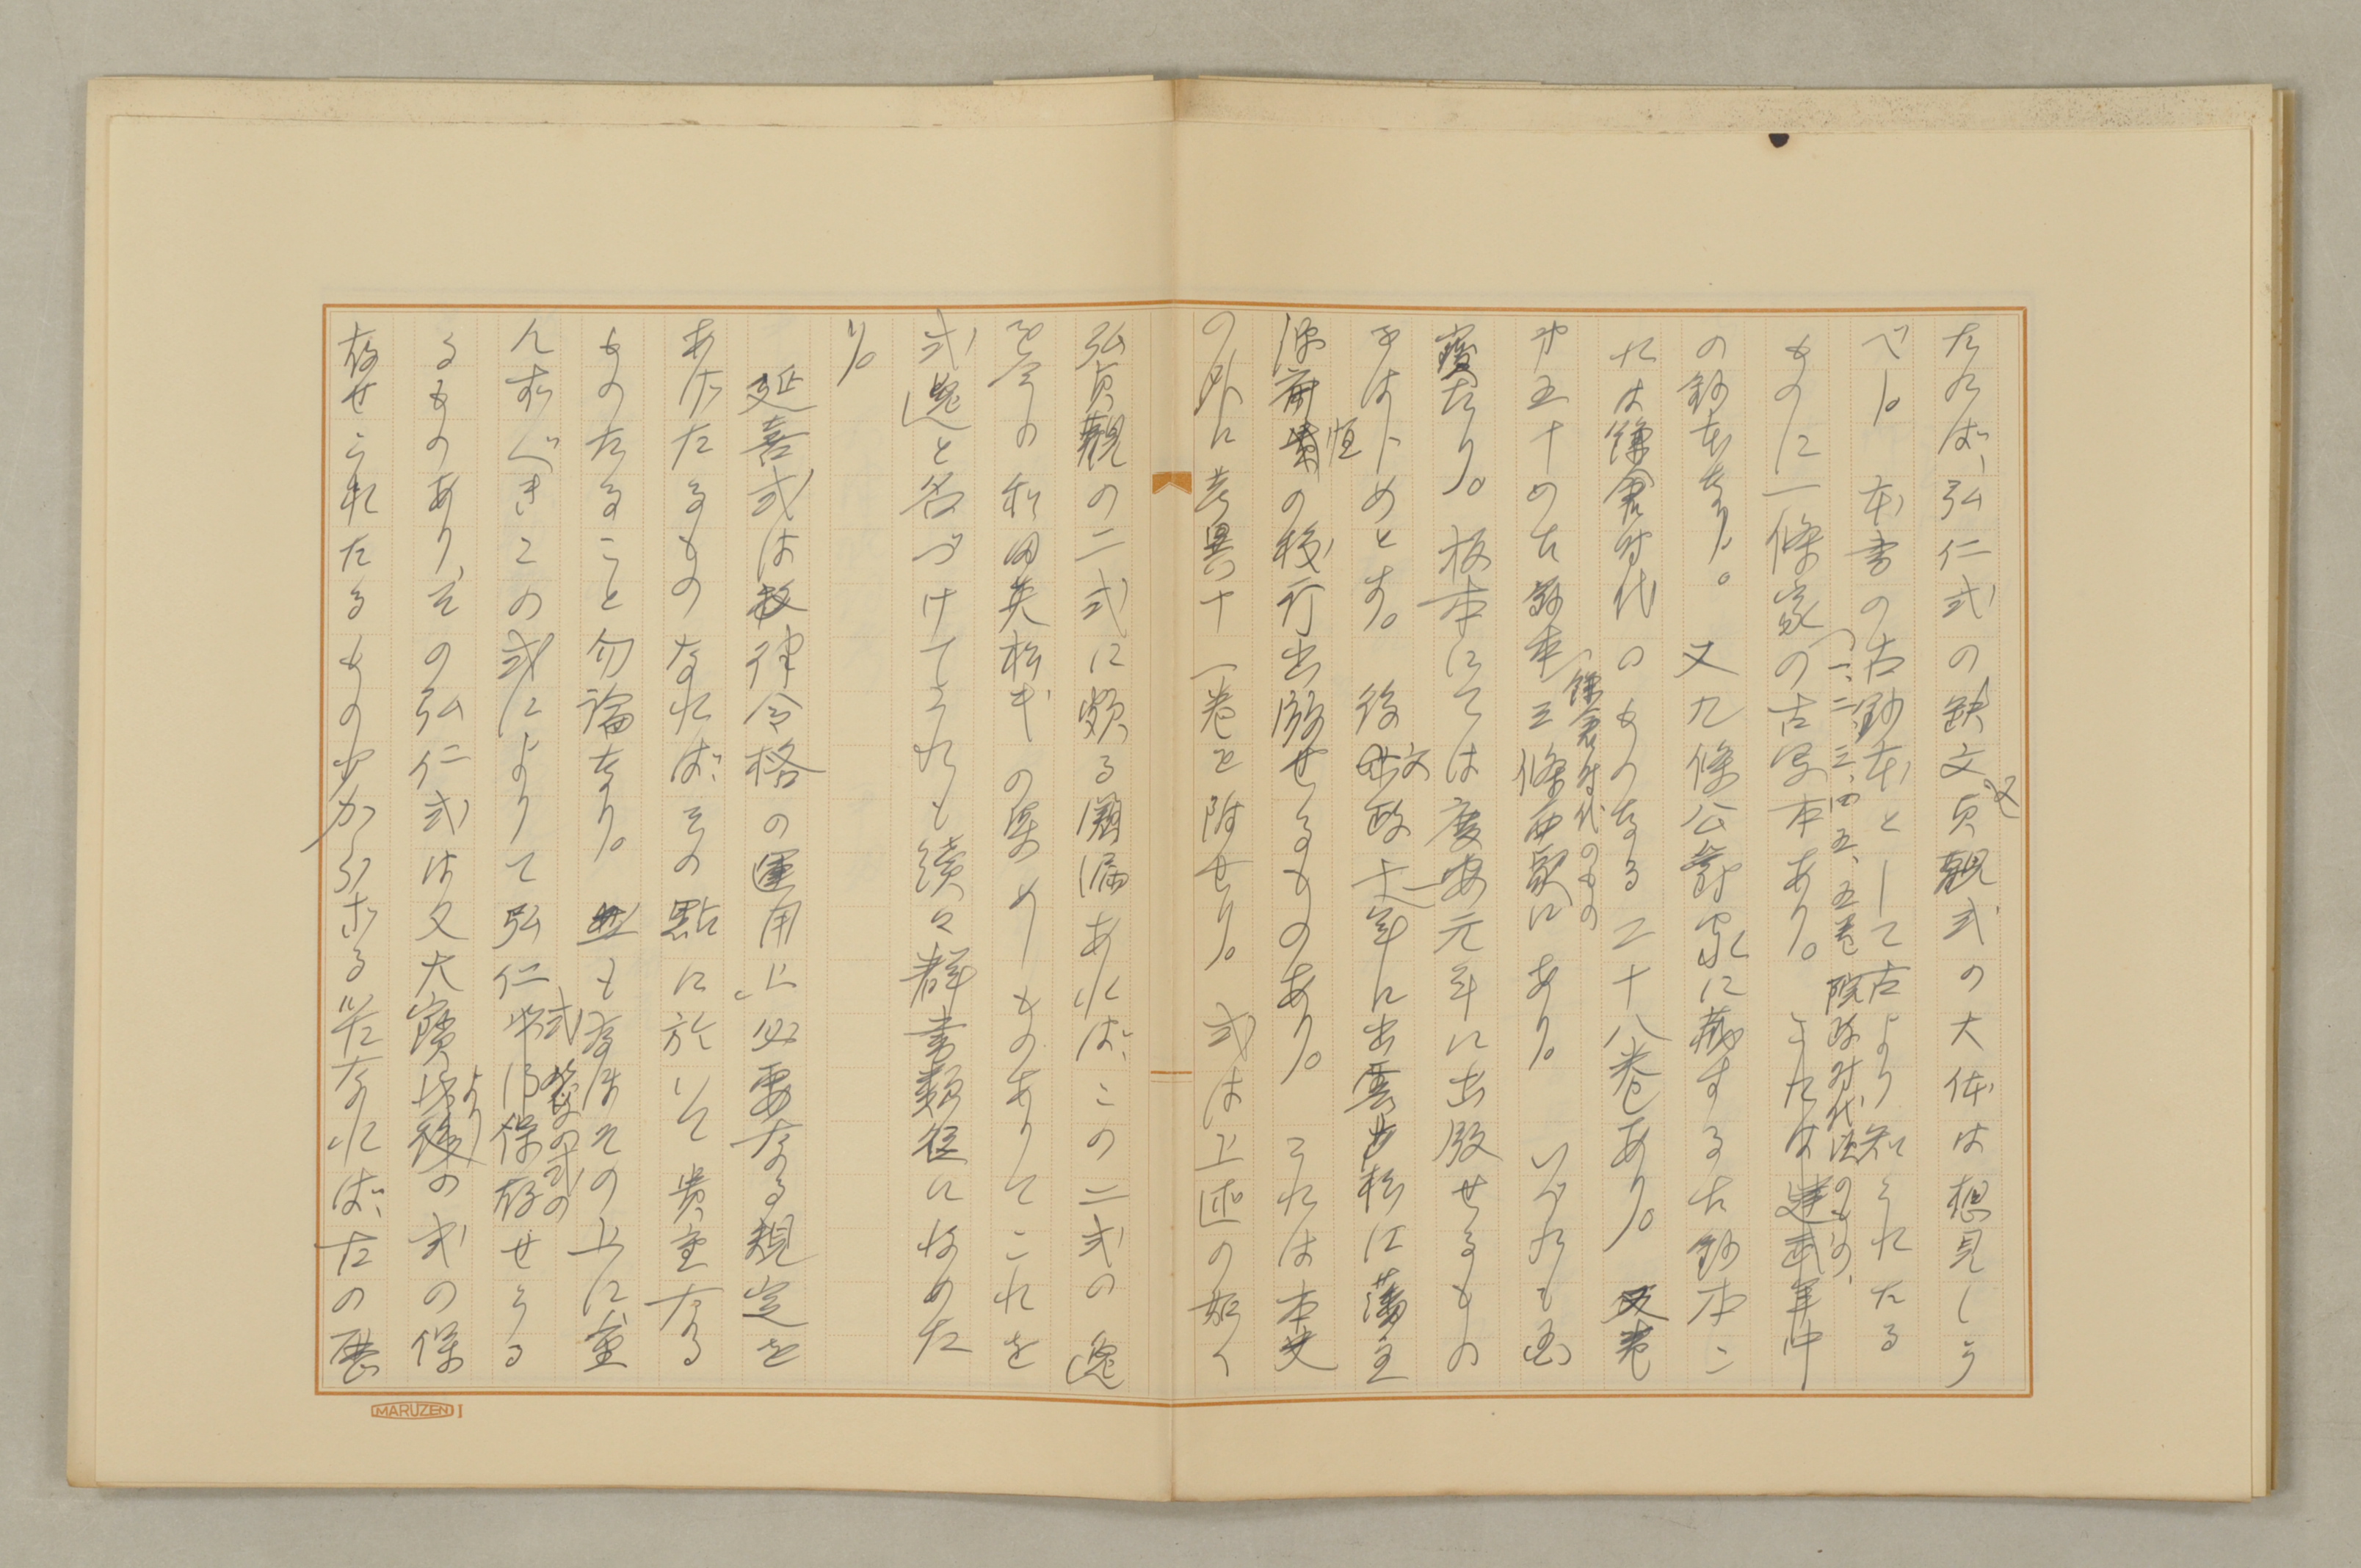 たれば、弘仁式の缺文又貞観式の大体は想見しう
べし。本書の古鈔本として古より知られたる
ものに一條家の古写本あり。これは
(一、二、三、四、五、五巻 院政時代頃のもの、
の鈔本なり。又九條公爵家に蔵する古鈔本こ
れは鎌倉時代のものなる二十八巻あり。
や五十の古鈔本三條西家にあり。いづれも国
(鎌倉時代のもの
寶なり。板本にては慶安元年に出版せるもの
をはじめとす。後文政十一年に出雲松江藩主
源斉恒の校訂出版せるものあり。これは本文
の外に考異十一巻を附せり。式は上述の如く
弘貞観の二式に頗る闕漏あれば、この二式の逸
を今の和田英松氏の集めしものありてこれを
式逸と名づけてこれも續々群書類従に収めた
り。
延喜式は律令格の運用上必要なる規定を
あげたるものなればその點に於いて貴重なる
ものたること勿論なり。もなほその上に重
んずべきこの式によりて弘仁式等の式の保存せらる
るものあり、その弘仁式は又大寶よりの式の保
存せられたるもの少からざる筈なれば、古の歴
MARUZEN I